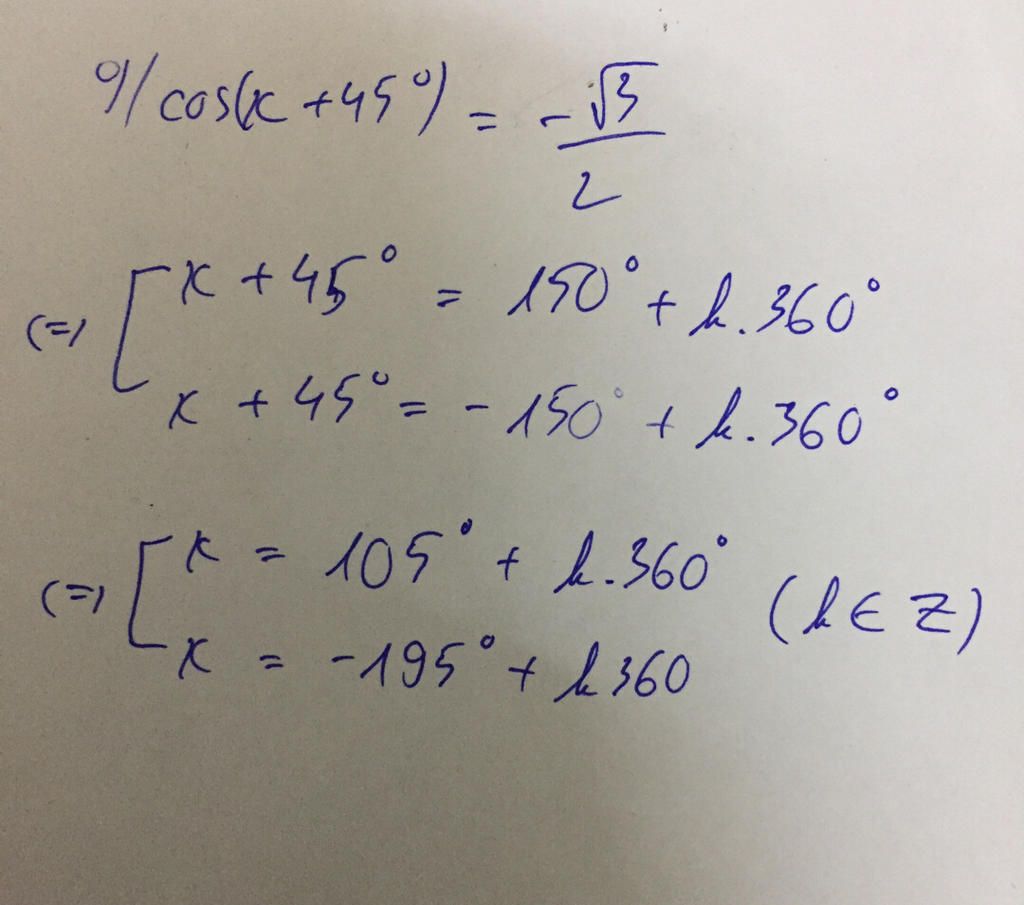 9/ cos(x + 45°) = -√3/2
(=) [ x + 45° = 150° + k.360°
x + 45° = -150° + k.360°
(=) [ x = 105° + k.360°
x = -195° + k360 (k ∈ Z)